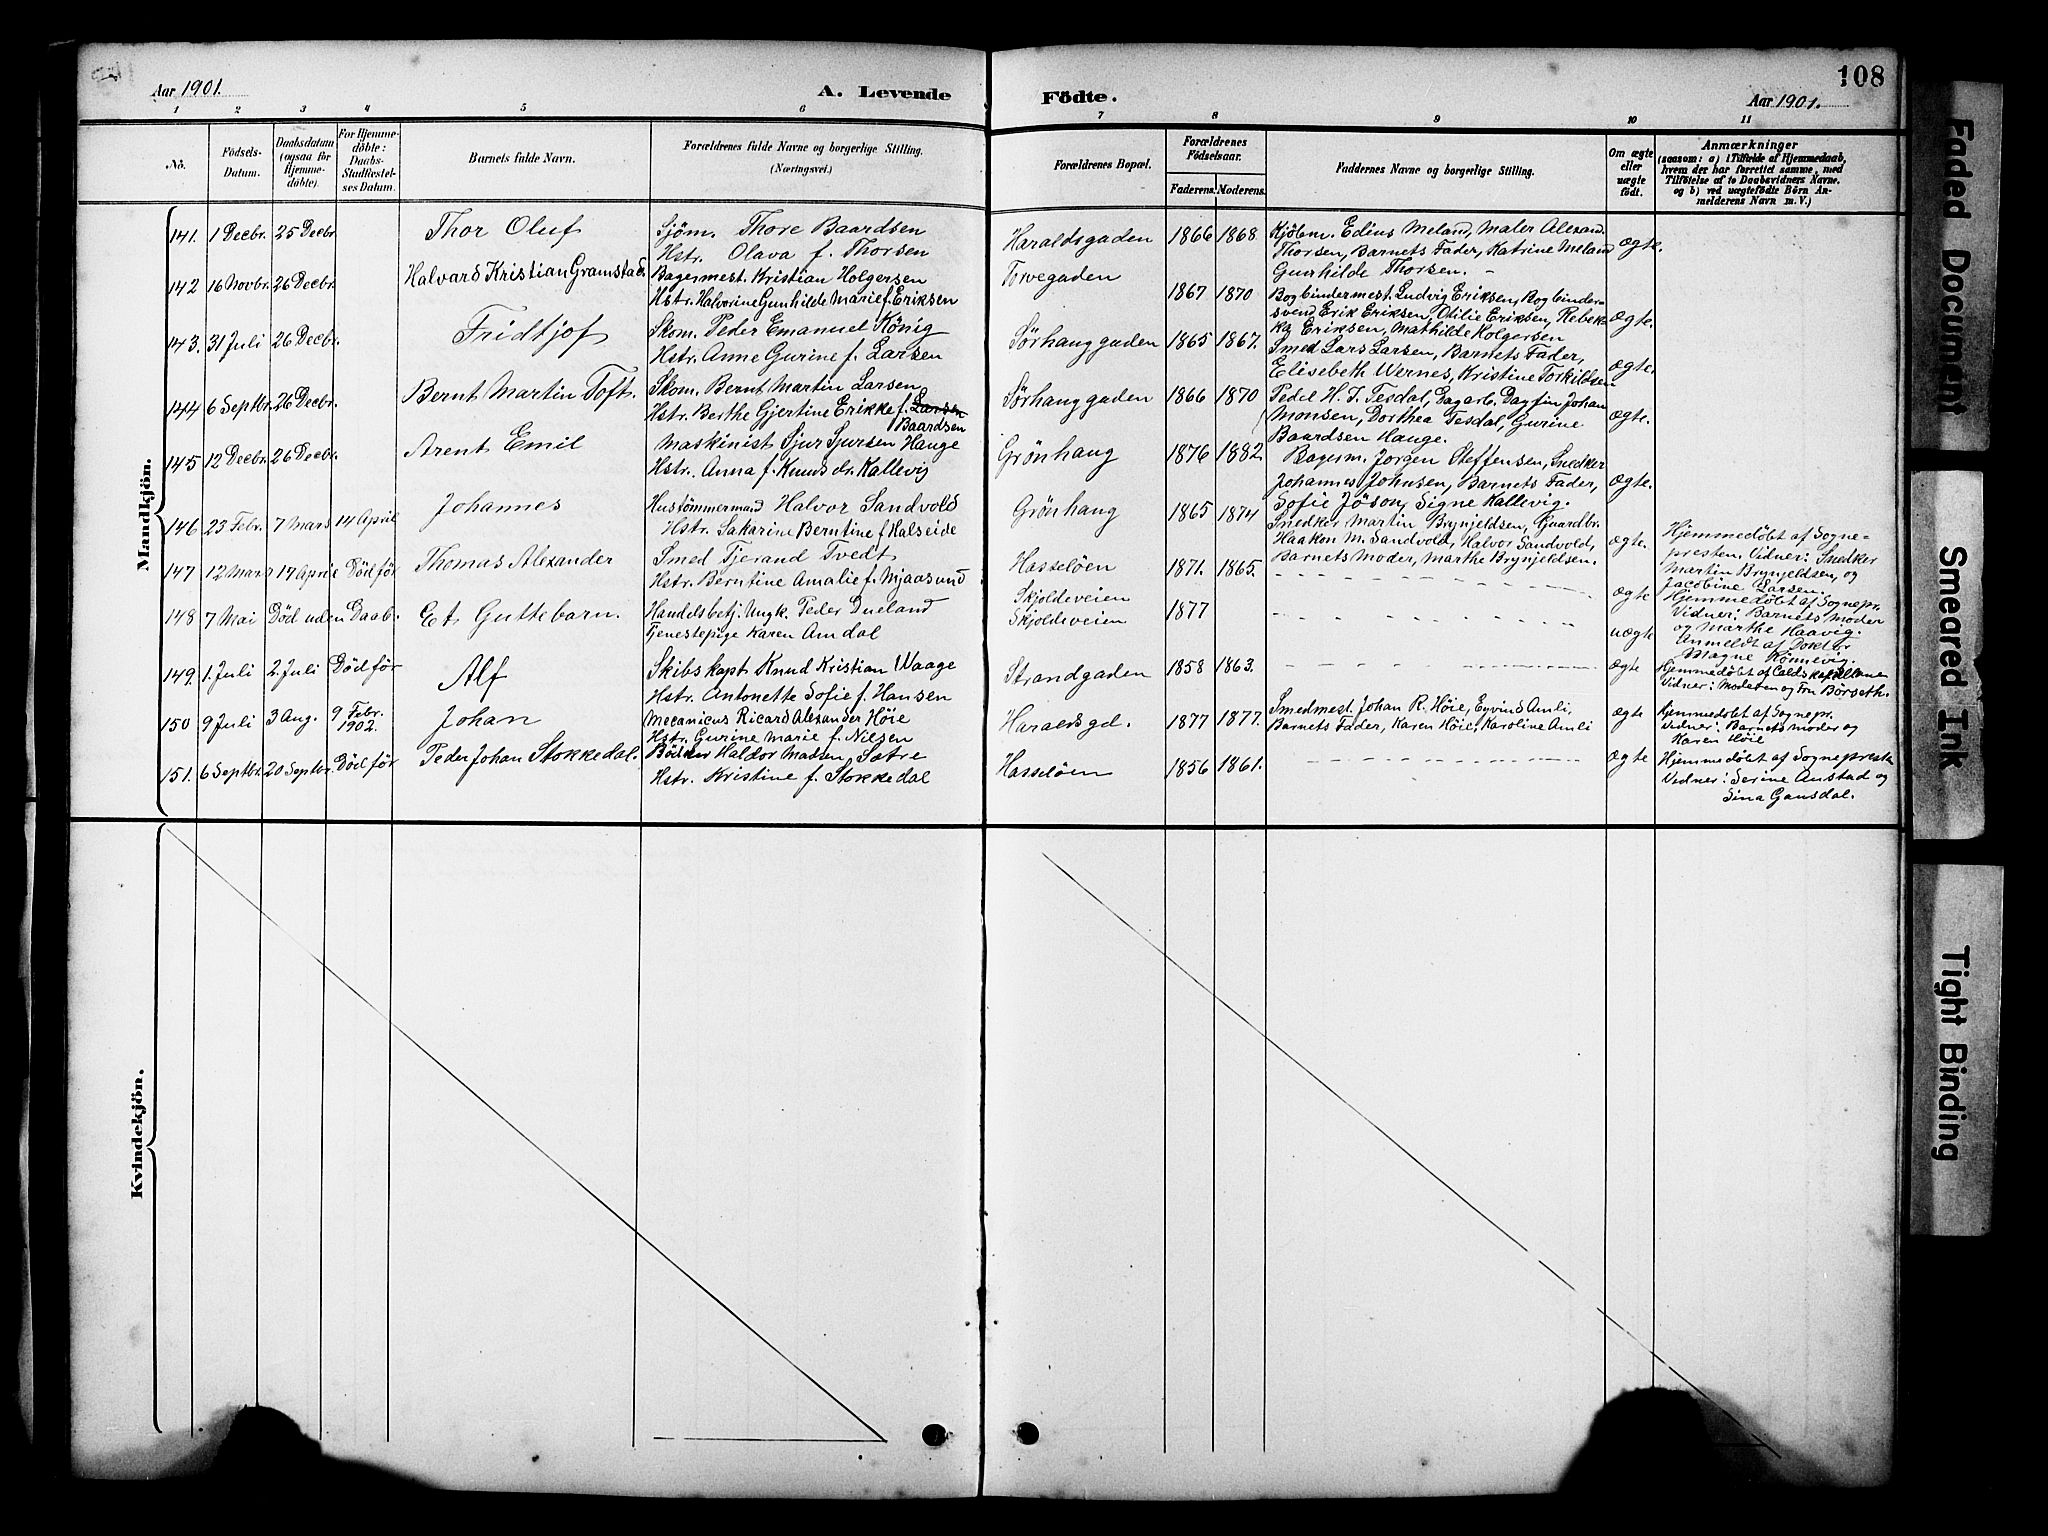 108
Aar 1901.
A. Levende
Födte.
Aar 1901.
1 2 3 4 5 6 7 8 9 10 11
No.
Födsels-
Datum.
Daabsdatum
(ogsaa for
Hjemme-
döbte).
For Hjemme-
döbte:
Daabs-
Stadfæstel-
ses Datum.
Barnets fulde Navn.
Forældrenes fulde Navne og borgerlige Stilling.
(Næringsvei.)
Forældrenes Bopæl.
Forældrenes
Födselsaar.
Faderens. Moderens.
Faddernes Navne og borgerlige Stilling.
Om ægte
eller
uægte
födt.
Anmærkninger
(saasom: a) i Tilfælde af Hjemmedaab,
hvem der har forrettet samme, med
Tilföielse af to Daabsvidners Navne.
og b) ved uægtefödte Börn An-
melderens Navn m. V.)
Mandkjön.
141. 1 Decbr. 25 Decbr. Thor Oluf
Sjöm. Thore Baardsen
Hstr. Olava f. Thorsen
Haraldsgaden 1866 1868
Kjöbm. Edius Meland, Maler Alexand.
Thorsen, Barnets Fader, Katrine Meland
Gunhilde Thorsen. -
ægte.
142 16 Novbr. 26 Decbr. Halvard Kristian Gramstad.
Bagermest. Kristian Holgersen
Hstr. Halvorine Gunhilde Marie f. Eriksen
Torvegaden 1867 1870
Bogbindermest. Ludvig Eriksen, Bogbinder-
svend Erik Eriksen, Otilie Eriksen, Rebek-
ka Eriksen, Mathilde Holgersen
ægte.
143. 31 Juli 26 Decbr. Fridtjof
Skom. Peder Emanuel König
Hstr. Anne Gurine f. Larsen
Sørhauggaden 1865 1867.
Smed Lars Larsen, Barnets Fader,
Elisebeth Wernes, Kristine Torkildsen
ægte.
144 6 Septbr. 26 Decbr. Bernt Martin Toft.
Skom. Bernt Martin Larsen
Hstr. Berthe Gjertine Erikke f. Larsen
Baardsen
Sørhauggaden 1866 1870
Pedel H. J. Tesdal, Dagarb. Dagfin Johan
Monsen, Dorthea Tesdal, Gurine
Baardsen Hauge.
ægte.
145 12 Decbr. 26 Decbr. Arent Emil
Maskinist Sjur Sjursen Hauge
Hstr. Anna f. Knuds dr. Kallevig
Grönhaug 1876 1882
Bagerm. Jörgen Steffensen, Snedker
Johannes Johnsen, Barnets Fader,
Sofie Jöson, Signe Kallevig.
ægte.
146 23 Febr. 7 Mars 14 April Johannes
Hustömmermand Halvor Sandvold
Hstr. Sakarine Berntine f Halseide
Grönhaug 1865 1874
Snedker Martin Brynjeldsen, Guardbr.
Haakon M. Sandvold, Halvor Sandvold,
Barnets Moder, Marthe Brynjeldsen.
ægte.
Hjemmedøbt af Sogne-
presten. Vidner: Snedker
Martin Brynjeldsen, og
Jacobine Larsen.
147 12 Mars 14 April Död för Thomas Alexander
Smed Tjerand Tvedt
Hstr. Berntine Amalie f. Mjaasund
Hasselöen 1871. 1865.
ægte
Hjemmedøbt af Sognepr.
Vidner: Barnets Moder
og Marthe Haavig.
148 7 Mai Död uden Daab. Et Guttebarn.
Handelsbetj. Ungk. Peder Dueland
Tjenestepige Karen Amdal
Skjoldeveien
Skjoldeveien
1877
uægte
Anmeldt af Doktor
Magne Könnevig.
149. 1. Juli 2. Juli Död för Alf
Skibskapt. Knud Kristian Waage
Hstr. Antonette Sofie f. Hansen
Strandgaden 1858 1863.
ægte
Hjemmedøbt af Caldskapellanen
Vidner: Moderen og Fru Börseth.
150 9 Juli 3 Aug. 9 Febr.
1902.
Johan
Mecanicus Ricard Alexander Höie
Hstr. Gurine Marie f. Nilsen
Haraldsgd. 1877 1877.
Smedmest. Johan R. Höie, Eyvind Amli,
Barnets Fader, Karen Höie, Karoline Amli
ægte
Hjemmedøbt af Sognepr.
Vidner: Barnets Moder og
Karen Höie
151. 6 Septbr. 20 Septbr. Död för Peder Johan Stokkedal.
Bödker Haldor Madsen Sætre
Hstr. Kristine f. Stokkedal
Hasselöen 1856 1861.
ægte
Hjemmedøbt af Sognepresten
Vidner: Serine Anstad og
Sina Gausdal.
Kvindekjön.
Faded Document
Smeared Ink
Tight Binding